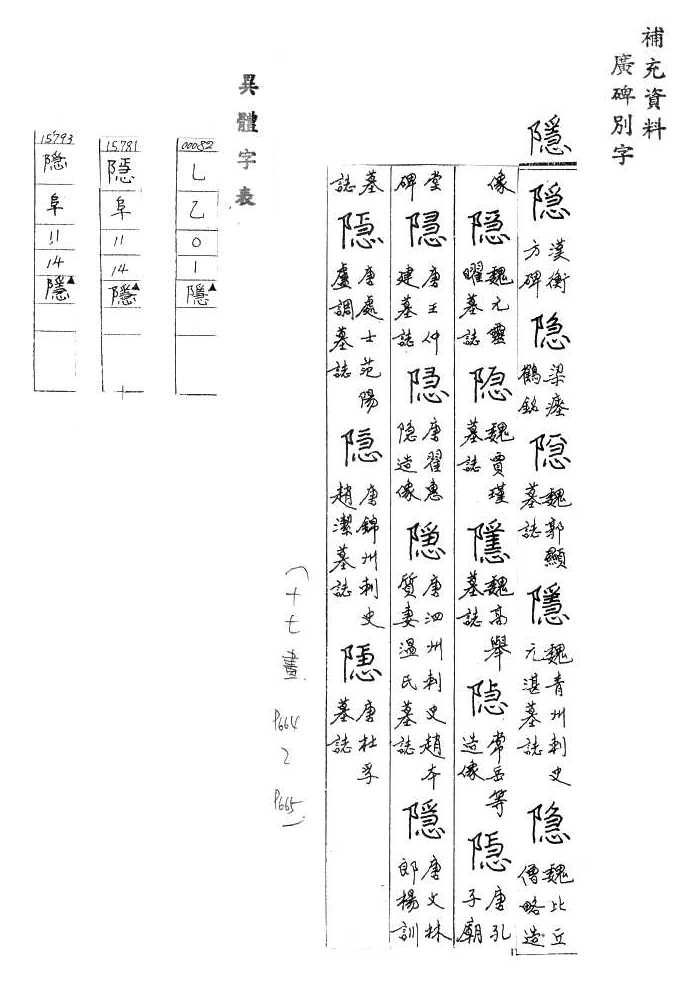 補充資料
廣碑別字
隱
隱 漢衡方碑 隐 梁瘞鶴銘 隱 魏郭顯墓誌 隱 魏青州刺史元湛墓誌 隐 魏比丘僧略造
像 隐 魏元靈曜墓誌 隐 魏賈瑾墓誌 隱 魏高舉墓誌 常岳等造像 隱 唐孔子廟
堂碑 隱 唐王仲建墓誌 隱 唐翟惠隐造像 隱 唐泗州刺史趙本質妻溫氏墓誌 隱 唐文林郎楊訓
墓誌 隱 唐處士范陽盧調墓誌 隱 唐錦州刺史趙潔墓誌 隱 唐杜孚墓誌
(十七畫 P664 ~ P665)
異體字表
00082
乚
乙
0
1
隱▲
15781
阜
11
14
隱▲
15793
隐
阜
11
14
隱▲